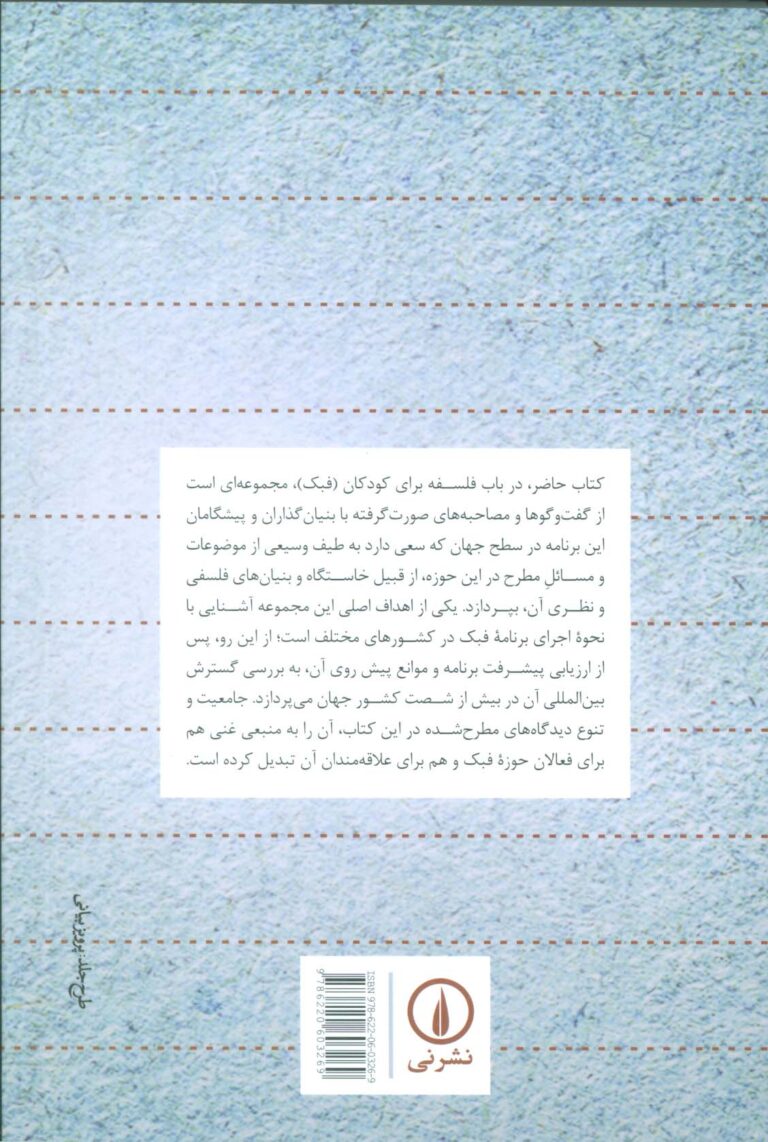 کتاب حاضر، در باب فلسفه برای کودکان (فبک)، مجموعه‌ای است
از گفت‌وگوها و مصاحبه‌های صورت‌گرفته با بنیان‌گذاران و پیشگامان
این برنامه در سطح جهان که سعی دارد به طیف وسیعی از موضوعات
و مسائلِ مطرح در این حوزه، از قبیل خاستگاه و بنیان‌های فلسفی
و نظری آن، بپردازد. یکی از اهداف اصلی این مجموعه آشنایی با
نحوهٔ اجرای برنامهٔ فبک در کشورهای مختلف است؛ از این رو، پس
از ارزیابی پیشرفت برنامه و موانع پیش روی آن، به بررسی گسترش
بین‌المللی آن در بیش از شصت کشور جهان می‌پردازد. جامعیت و
تنوع دیدگاه‌های مطرح‌شده در این کتاب، آن را به منبعی غنی هم
برای فعالان حوزهٔ فبک و هم برای علاقه‌مندان آن تبدیل کرده است.
طرح جلد: پرویز بیانی
نشر نی
ISBN 978-622-06-0326-9
9786220603269